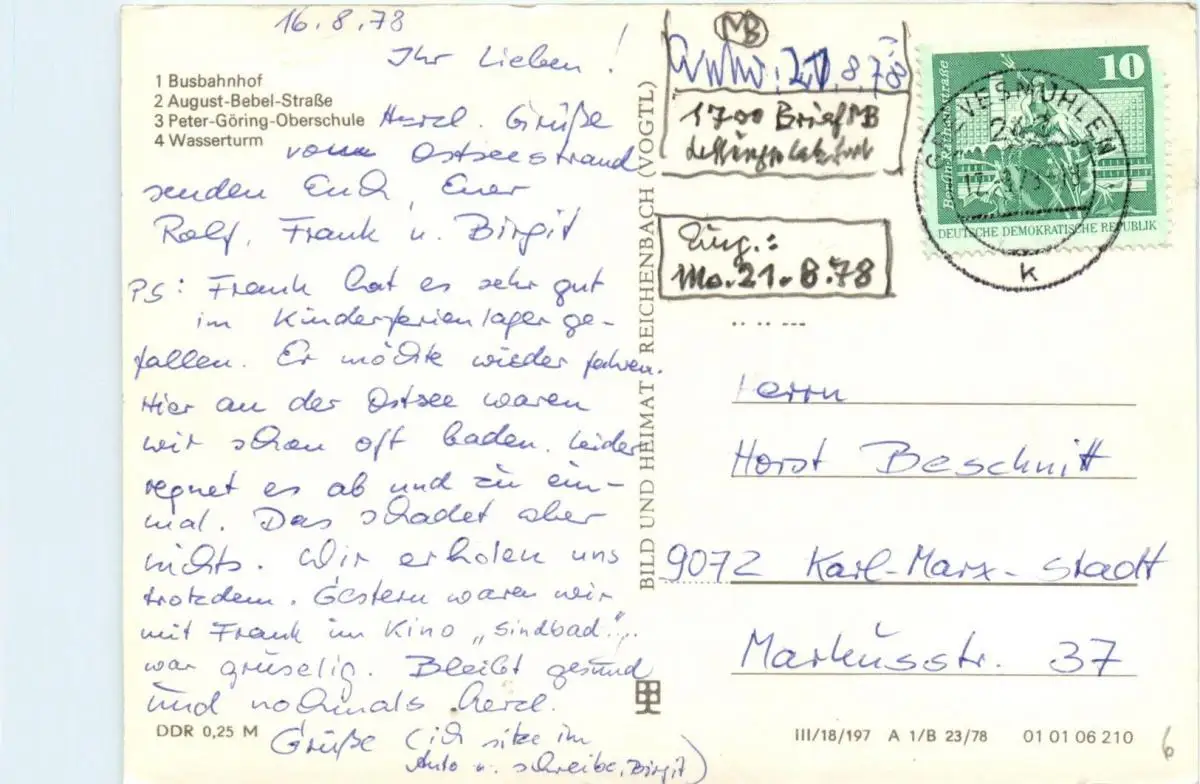 16.8.78
Ihr Lieben!
1 Busbahnhof
2 August-Bebel-Straße
3 Peter-Göring-Oberschule
4 Wasserturm
Herzl. Grüße
vom Ostseestrand
senden Euch, Euer
Rolf, Frank u. Birgit
PS: Frank hat es sehr gut
im Kinderferienlager ge-
fallen. Er möchte wieder fahren.
Hier an der Ostsee waren
wir schon oft baden. Leider
regnet es ab und zu ein-
mal. Das schadet aber
nichts. Wir erholen uns
trotzdem. Gestern waren wir
mit Frank im Kino „Sindbad“,
war gruselig. Bleibt gesund
und nochmals herzl.
Grüße (ich sitze im
Auto u. schreibe, Birgit)
DDR 0,25 M
BILD UND HEIMAT REICHENBACH (VOGTL)
MB
21.8.78
1700 Brief MB
Eing.:
Mo. 21.8.78
10
Berlin, Rathausstraße
DEUTSCHE DEMOKRATISCHE REPUBLIK
GREVESMÜHLEN
k
Herrn
Horst Beschnitt
9072 Karl-Marx-Stadt
Markusstr. 37
III/18/197 A 1/B 23/78 01 01 06 210
6